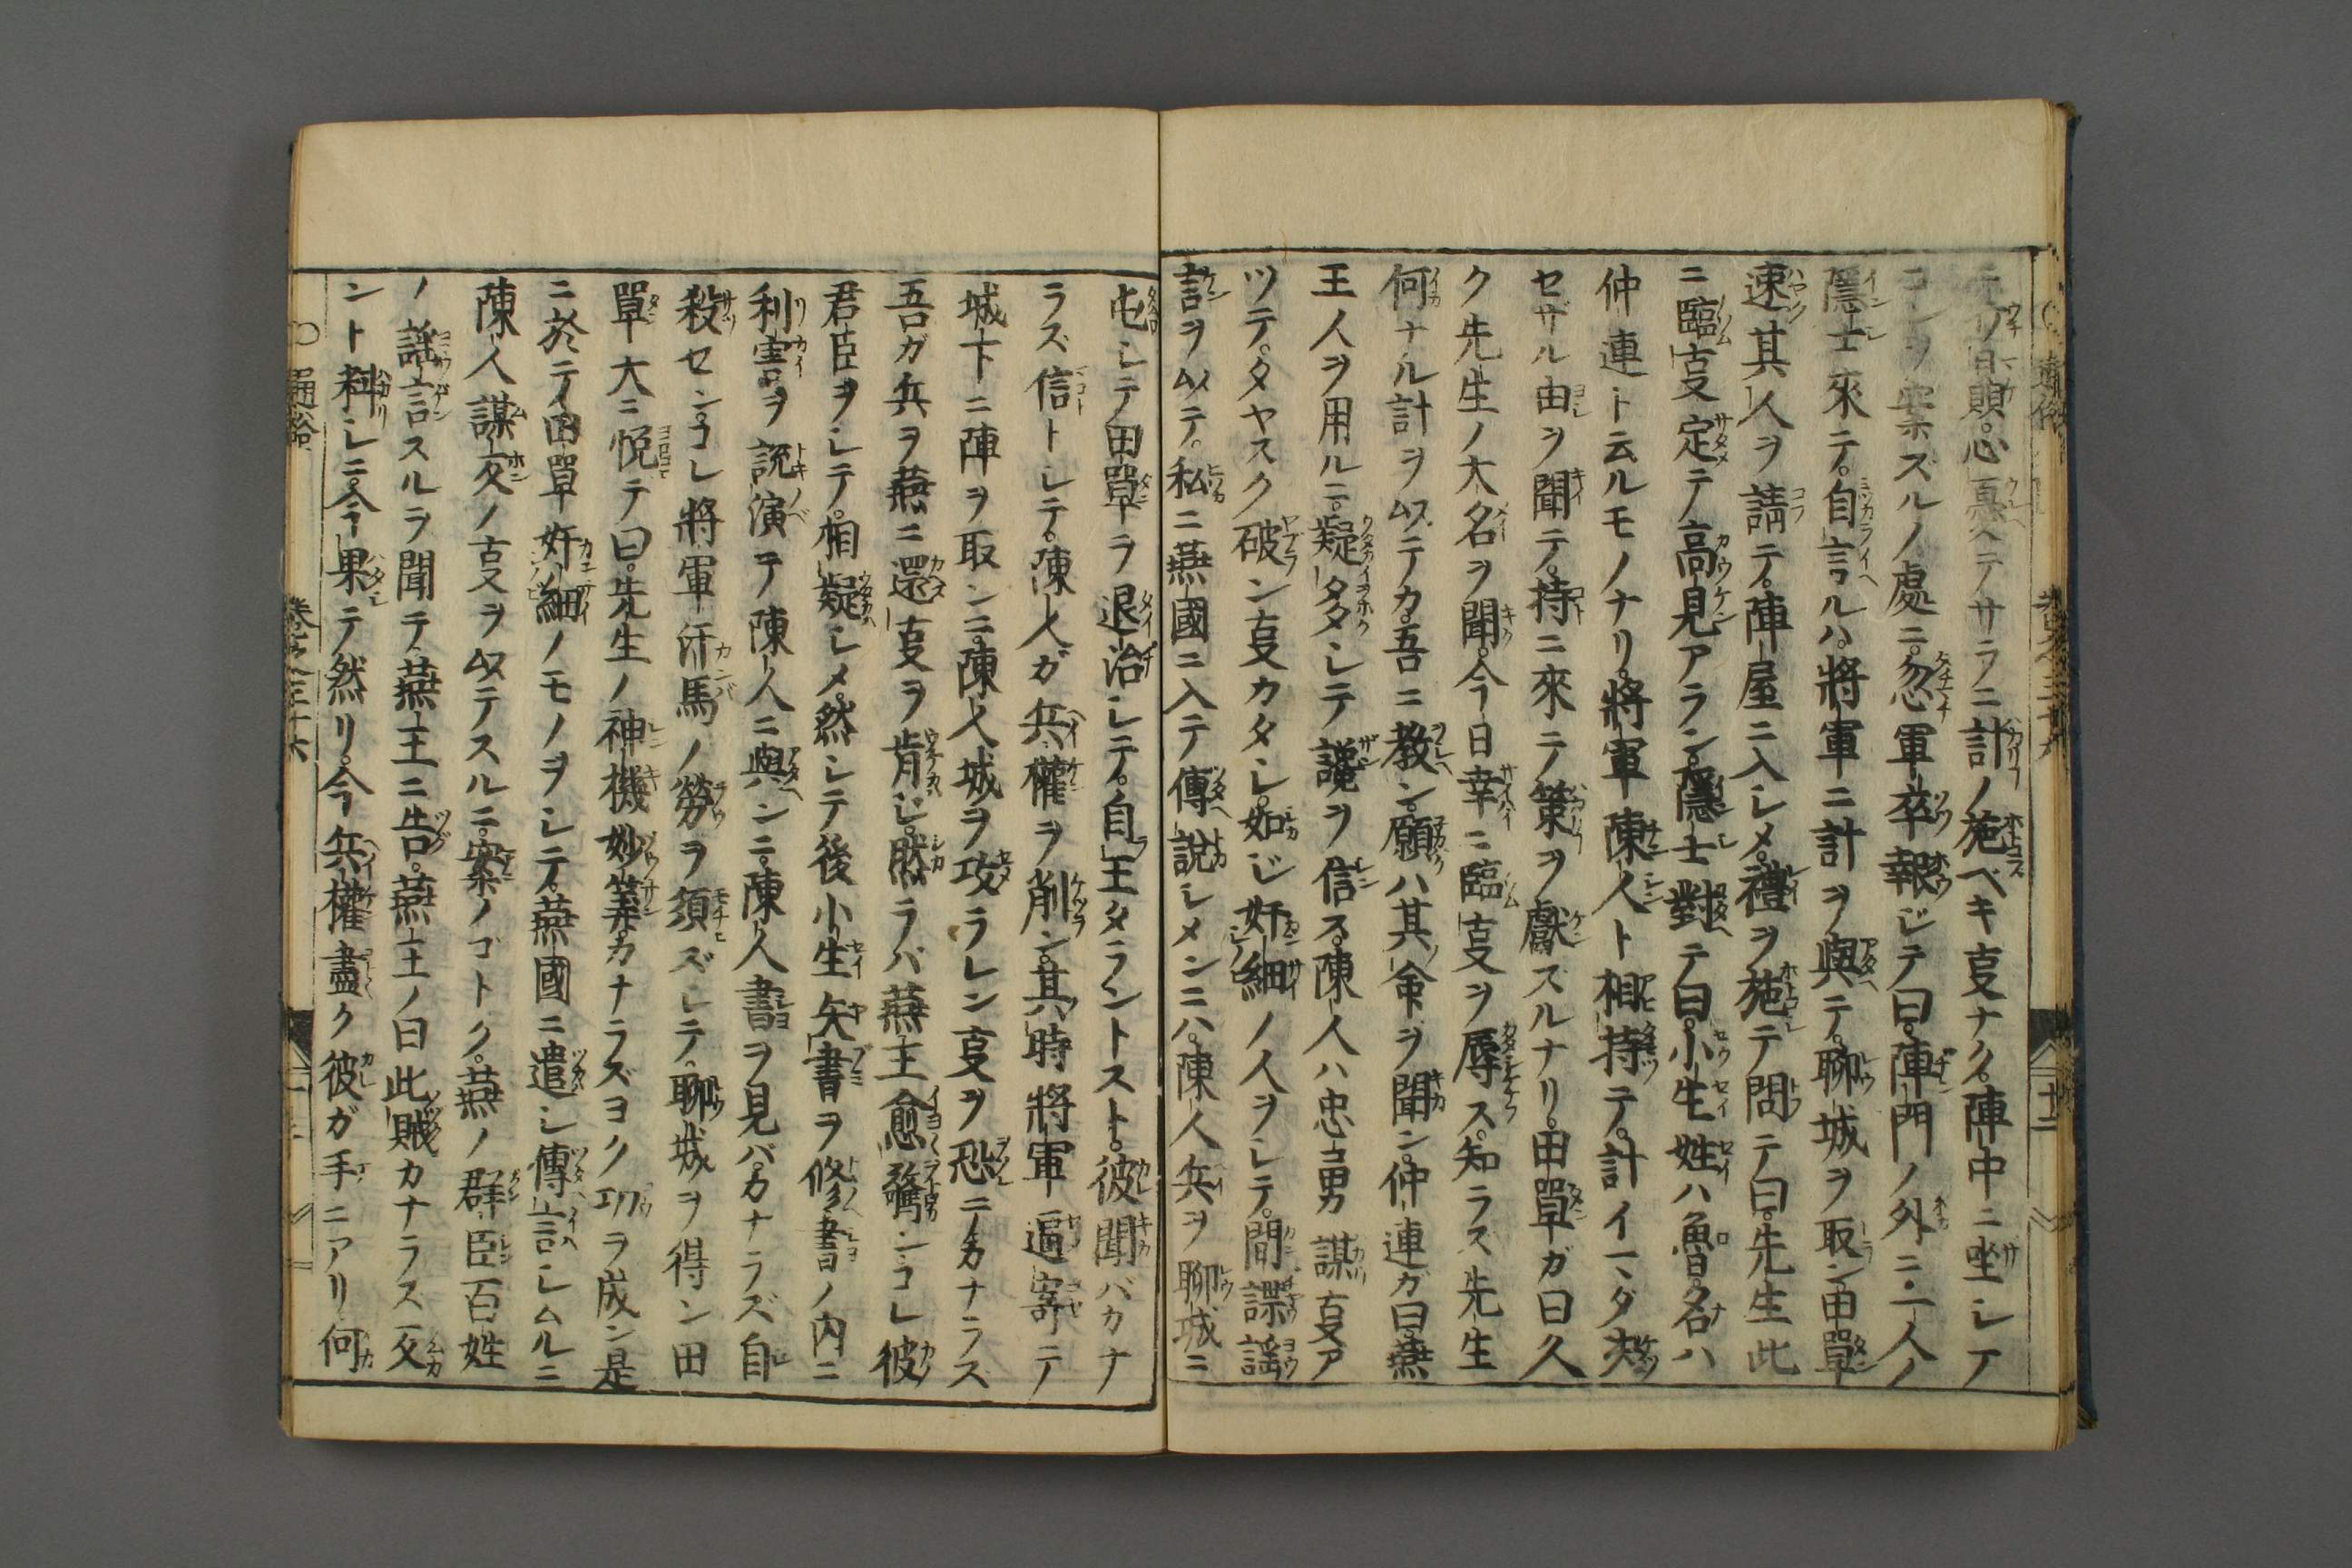 計ノ施ベキ叓ナク。陣中ニ坐シテ
ヲ案ズルノ處ニ。忽軍卒報ジテ曰。陣門ノ外ニ一人ノ
隱士來テ。自言ルハ。將軍ニ計ヲ與テ。聊城ヲ取ン。田單
速其人ヲ請テ。陣屋ニ入シメ。禮ヲ施テ問テ曰。先生此
ニ臨叓定テ高見アラン。隱士對テ曰。小生姓ハ魯。名ハ
仲連ト云ルモノナリ。將軍陳人ト相持テ。計イマダ决
セザル由ヲ聞テ。持ニ來テ策ヲ獻スルナリ。田單ガ曰久
ク先生ノ大名ヲ聞。今日幸ニ臨叓ヲ辱ス。知ラス先生
何ナル計ヲ以テカ。吾ニ教ン。願ハ其命ヲ聞ン。仲連ガ曰。燕
王人ヲ用ルニ。疑タタシテ讒ヲ信ス。陳人ハ忠勇謀叓ア
ツテ。タヤスク破ン叓カタシ。如ジ奸細ノ人ヲシテ。間諜謠
言ヲ以テ。私ニ燕國ニ入テ傳說シメンニハ。陳人兵ヲ聊城ニ
屯シテ田單ヲ退治シテ。自王タラントスト。彼聞バカナ
ラズ信トシテ。陳人ガ兵權ヲ削ン。其時將軍逼寄テ
城下ニ陣ヲ取ンニ。陳人城ヲ攻ラレン叓ヲ恐テ。カナラス
吾ガ兵ヲ燕ニ還叓ヲ肯ジ。然ラバ燕王愈驚ン。コレ彼
君臣ヲシテ。相疑シメ。然シテ後小生矢書ヲ修書ノ内ニ
利害ヲ説演テ陳人ニ與ンニ。陳人書ヲ見バ。カナラズ自
殺セン。コレ將軍汗馬ノ勞ヲ須ズシテ。聊城ヲ得ン田
單大ニ悦テ曰。先生ノ神機妙筭。カナラズヨク功ヲ成ン是
ニ於テ田單奸細ノモノヲシテ。燕國ニ遣シ傳言シムルニ
陳人謀反ノ叓ヲ以テスルニ。案ノゴトク。燕ノ群臣百姓
ノ謠言スルヲ聞テ。燕王ニ告。燕王ノ曰此賊カナラス反
ント料シニ。今果テ然リ。今兵權盡ク彼ガ手ニアリ何
○通俗 卷之三十六